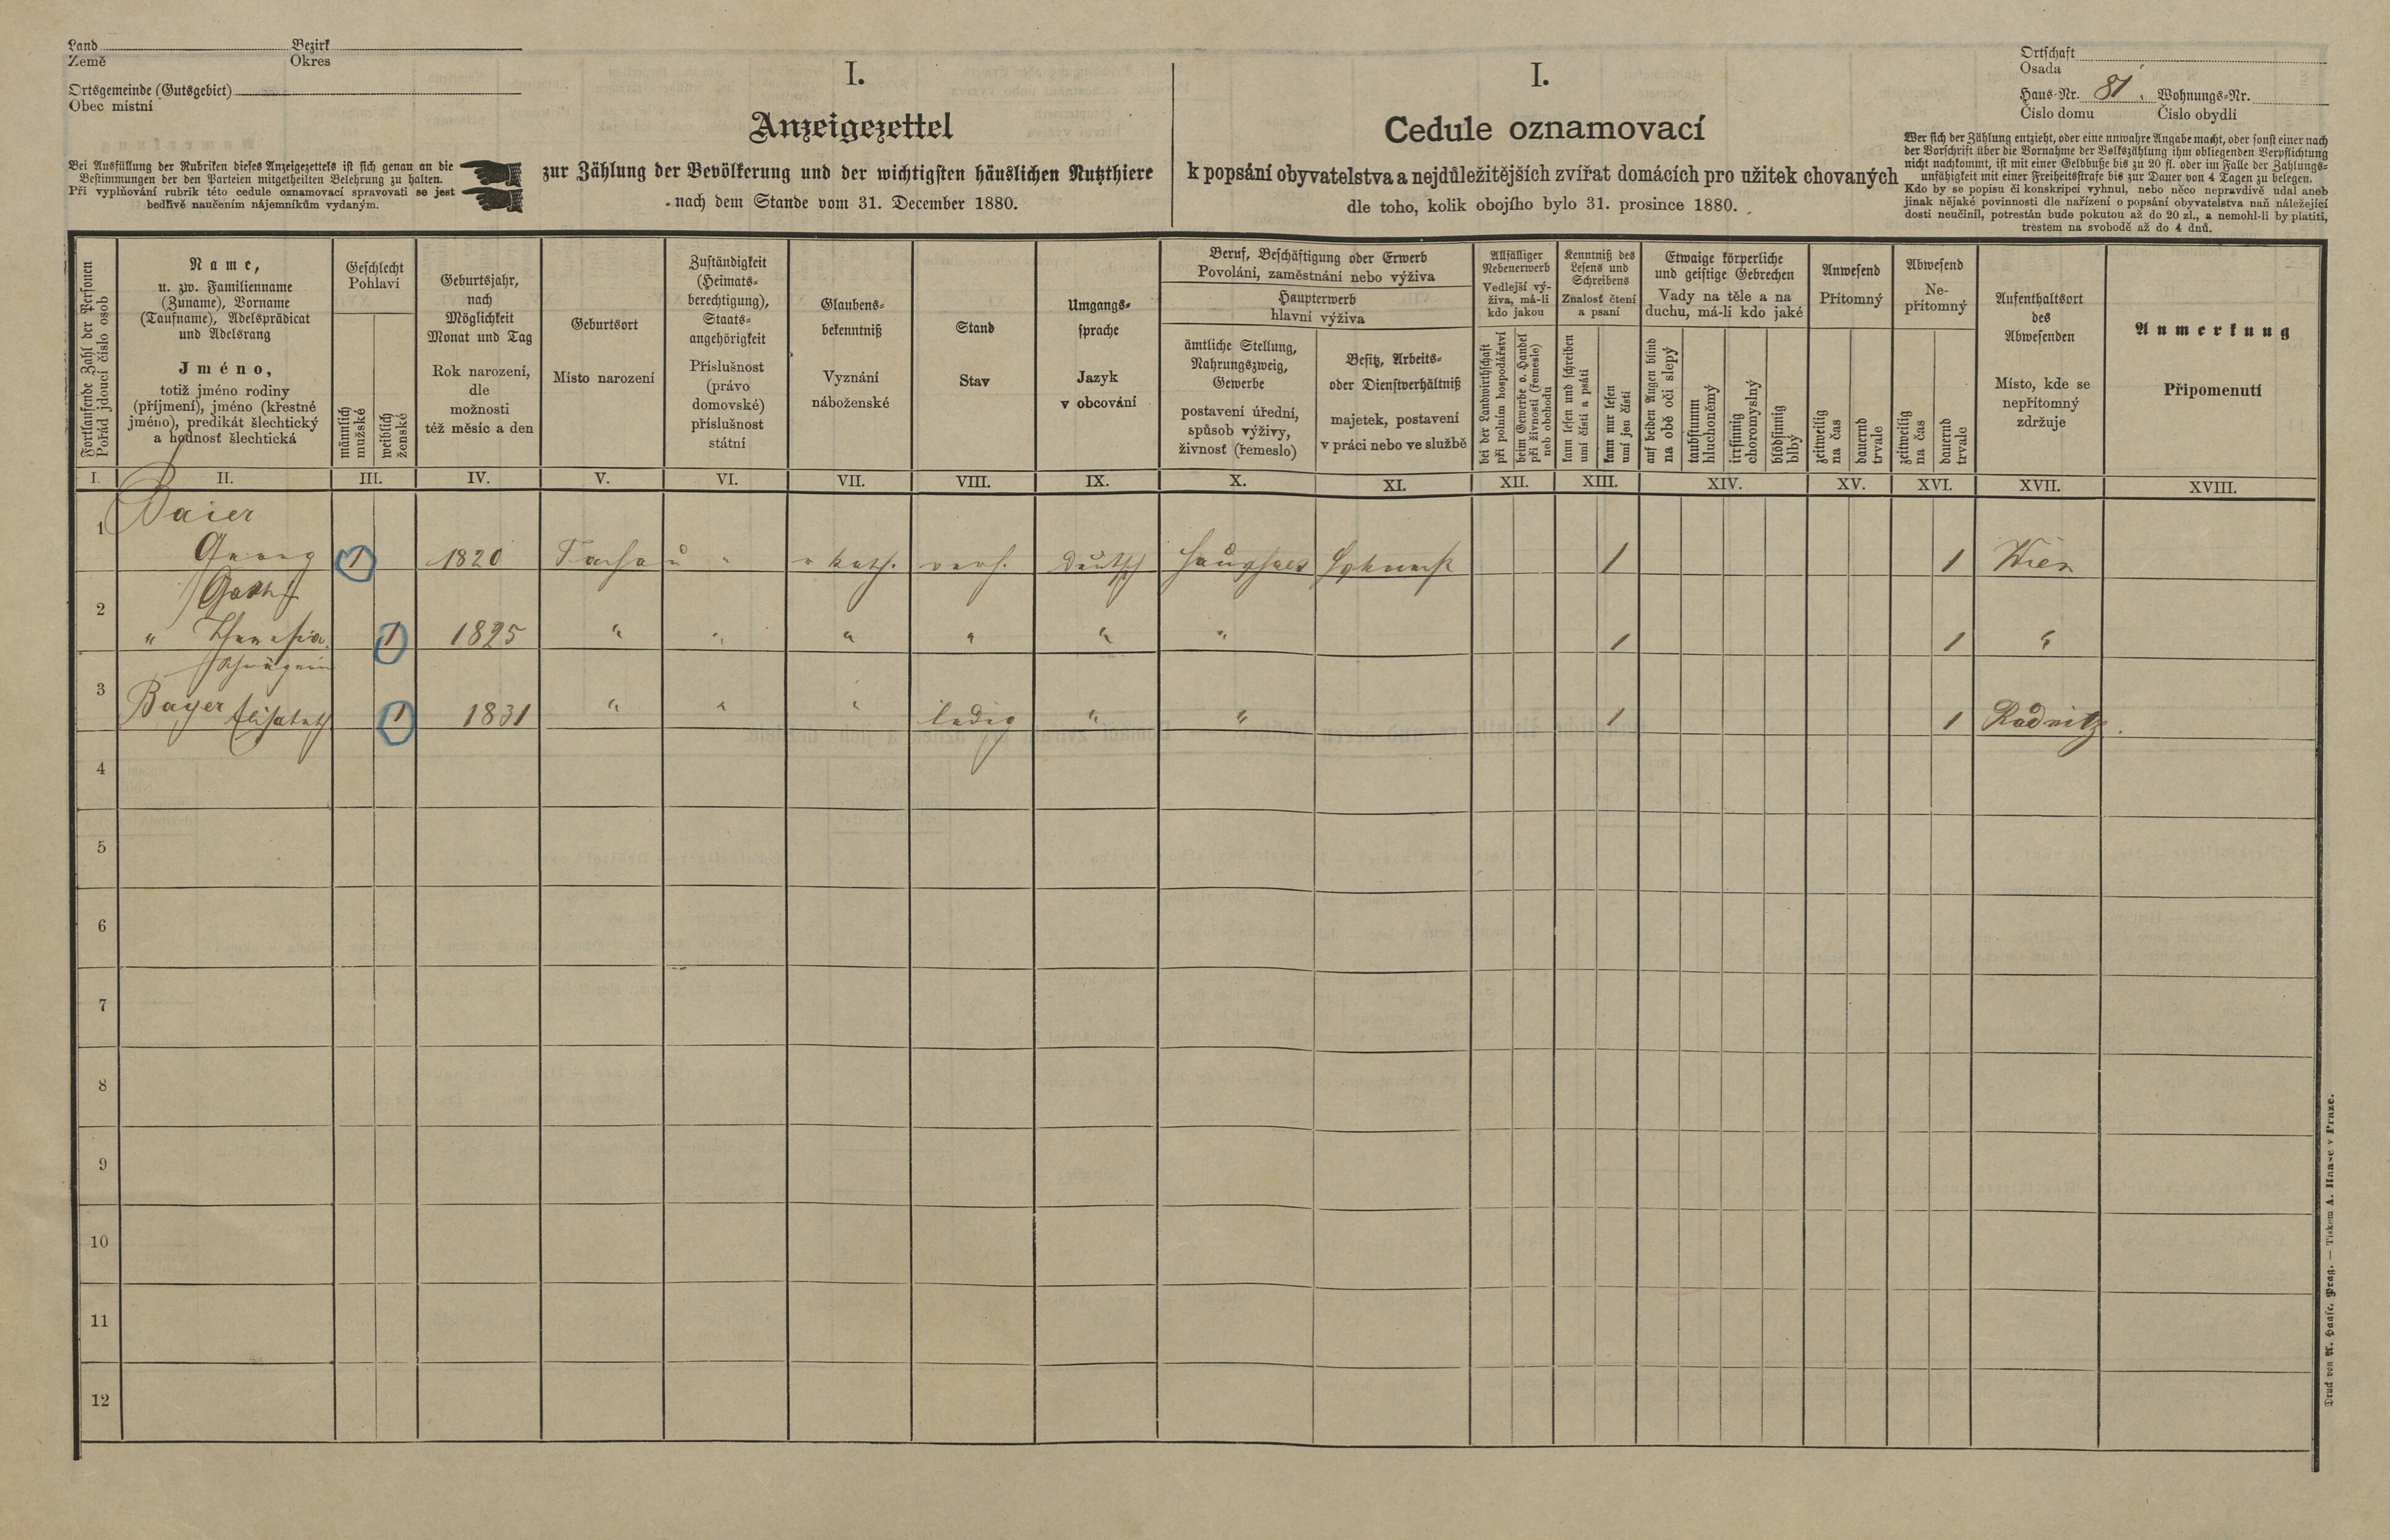 Land Bezirk
Země Okres
Ortsgemeinde (Gutsgebiet)
Obec místní
Bei Ausfüllung der Rubriken dieses Anzeigezettels ist sich genau an die
Bestimmungen der den Parteien mitgetheilten Belehrung zu halten.
Při vyplňování rubrik této cedule oznamovací spravovati se jest
bedlivě naučením nájemníkům vydaným.
I.
Anzeigezettel
zur Zählung der Bevölkerung und der wichtigsten häuslichen Nutzthiere
nach dem Stande vom 31. December 1880.
I.
Cedule oznamovací
k popsání obyvatelstva a nejdůležitějších zvířat domácích pro užitek chovaných
dle toho, kolik obojího bylo 31. prosince 1880.
Ortschaft
Osada
Haus-Nr. 81. Wohnungs-Nr.
Číslo domu Číslo obydlí
Wer sich der Zählung entzieht, oder eine unwahre Angabe macht, oder sonst einer nach
der Vorschrift über die Vornahme der Volkszählung ihm obliegenden Verpflichtung
nicht nachkommt, ist mit einer Geldbuße bis zu 20 fl. oder im Falle der Zahlungs-
unfähigkeit mit einer Freiheitsstrafe bis zur Dauer von 4 Tagen zu belegen.
Kdo by se popisu či konskripci vyhnul, nebo něco nepravdivě udal aneb
jinak nějaké povinnosti dle nařízení o popsání obyvatelstva naň náležející
dosti neučinil, potrestán bude pokutou až do 20 zl., a nemohl-li by platiti,
trestem na svobodě až do 4 dnů.
Fortlaufende Zahl der Personen
Pořád jdoucí číslo osob
Name,
u. zw. Familienname
(Zuname), Vorname
(Taufname), Adelsprädicat
und Adelsrang
Jméno,
totiž jméno rodiny
(příjmení), jméno (křestné
jméno), predikát šlechtický
a hodnosť šlechtická
Geschlecht
Pohlaví
männlich
mužské
weiblich
ženské
Geburtsjahr,
nach
Möglichkeit
Monat und Tag
Rok narození,
dle
možnosti
též měsíc a den
Geburtsort
Místo narození
Zuständigkeit
(Heimats-
berechtigung),
Staats-
angehörigkeit
Příslušnost
(právo
domovské)
příslušnost
státní
Glaubens-
bekenntniß
Vyznání
náboženské
Stand
Stav
Umgangs-
sprache
Jazyk
v obcování
Beruf, Beschäftigung oder Erwerb
Povolání, zaměstnání nebo výživa
Haupterwerb
hlavní výživa
ämtliche Stellung,
Nahrungszweig,
Gewerbe
postavení úřední,
spůsob výživy,
živnosť (řemeslo)
Besitz, Arbeits-
oder Dienstverhältniß
majetek, postavení
v práci nebo ve službě
Allfälliger
Nebenerwerb
Vedlejší vý-
živa, má-li
kdo jakou
bei der Landwirthschaft
při polním hospodářství
beim Gewerbe o. Handel
při živnosti (řemesle)
neb obchodu
Kenntniß des
Lesens und
Schreibens
Znalosť čtení
a psaní
kann lesen und schreiben
umí čísti a psáti
kann nur lesen
umí jen čísti
Etwaige körperliche
und geistige Gebrechen
Vady na těle a na
duchu, má-li kdo jaké
auf beiden Augen blind
na obě oči slepý
taubstumm
hluchoněmý
irrsinnig
choromyslný
blödsinnig
blbý
Anwesend
Přítomný
zeitweilig
na čas
dauernd
trvale
Abwesend
Ne-
přítomný
zeitweilig
na čas
dauernd
trvale
Aufenthaltsort
des
Abwesenden
Místo, kde se
nepřítomný
zdržuje
Anmerkung
Připomenutí
I. II. III. IV. V. VI. VII. VIII. IX. X. XI. XII. XIII. XIV. XV. XVI. XVII. XVIII.
1 Baier
Georg 1 1820 " kath. verh. Deutsch 1 1 Wien
Gattin
2 " Theresia 1 1825 " " " " " " 1 1 "
Schwägerin
3 Bayer Elisabeth 1 1831 " " " ledig " " 1 1 Radnitz.
4
5
6
7
8
9
10
11
12
Druck von A. Haase, Prag. — Tiskem A. Haase v Praze.